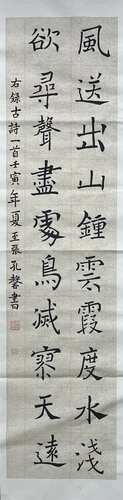 風送出山鐘雲霞度水淺
欲尋聲盡處鳥滅寥天遠
右錄古詩一首壬寅年夏至張孔馨書